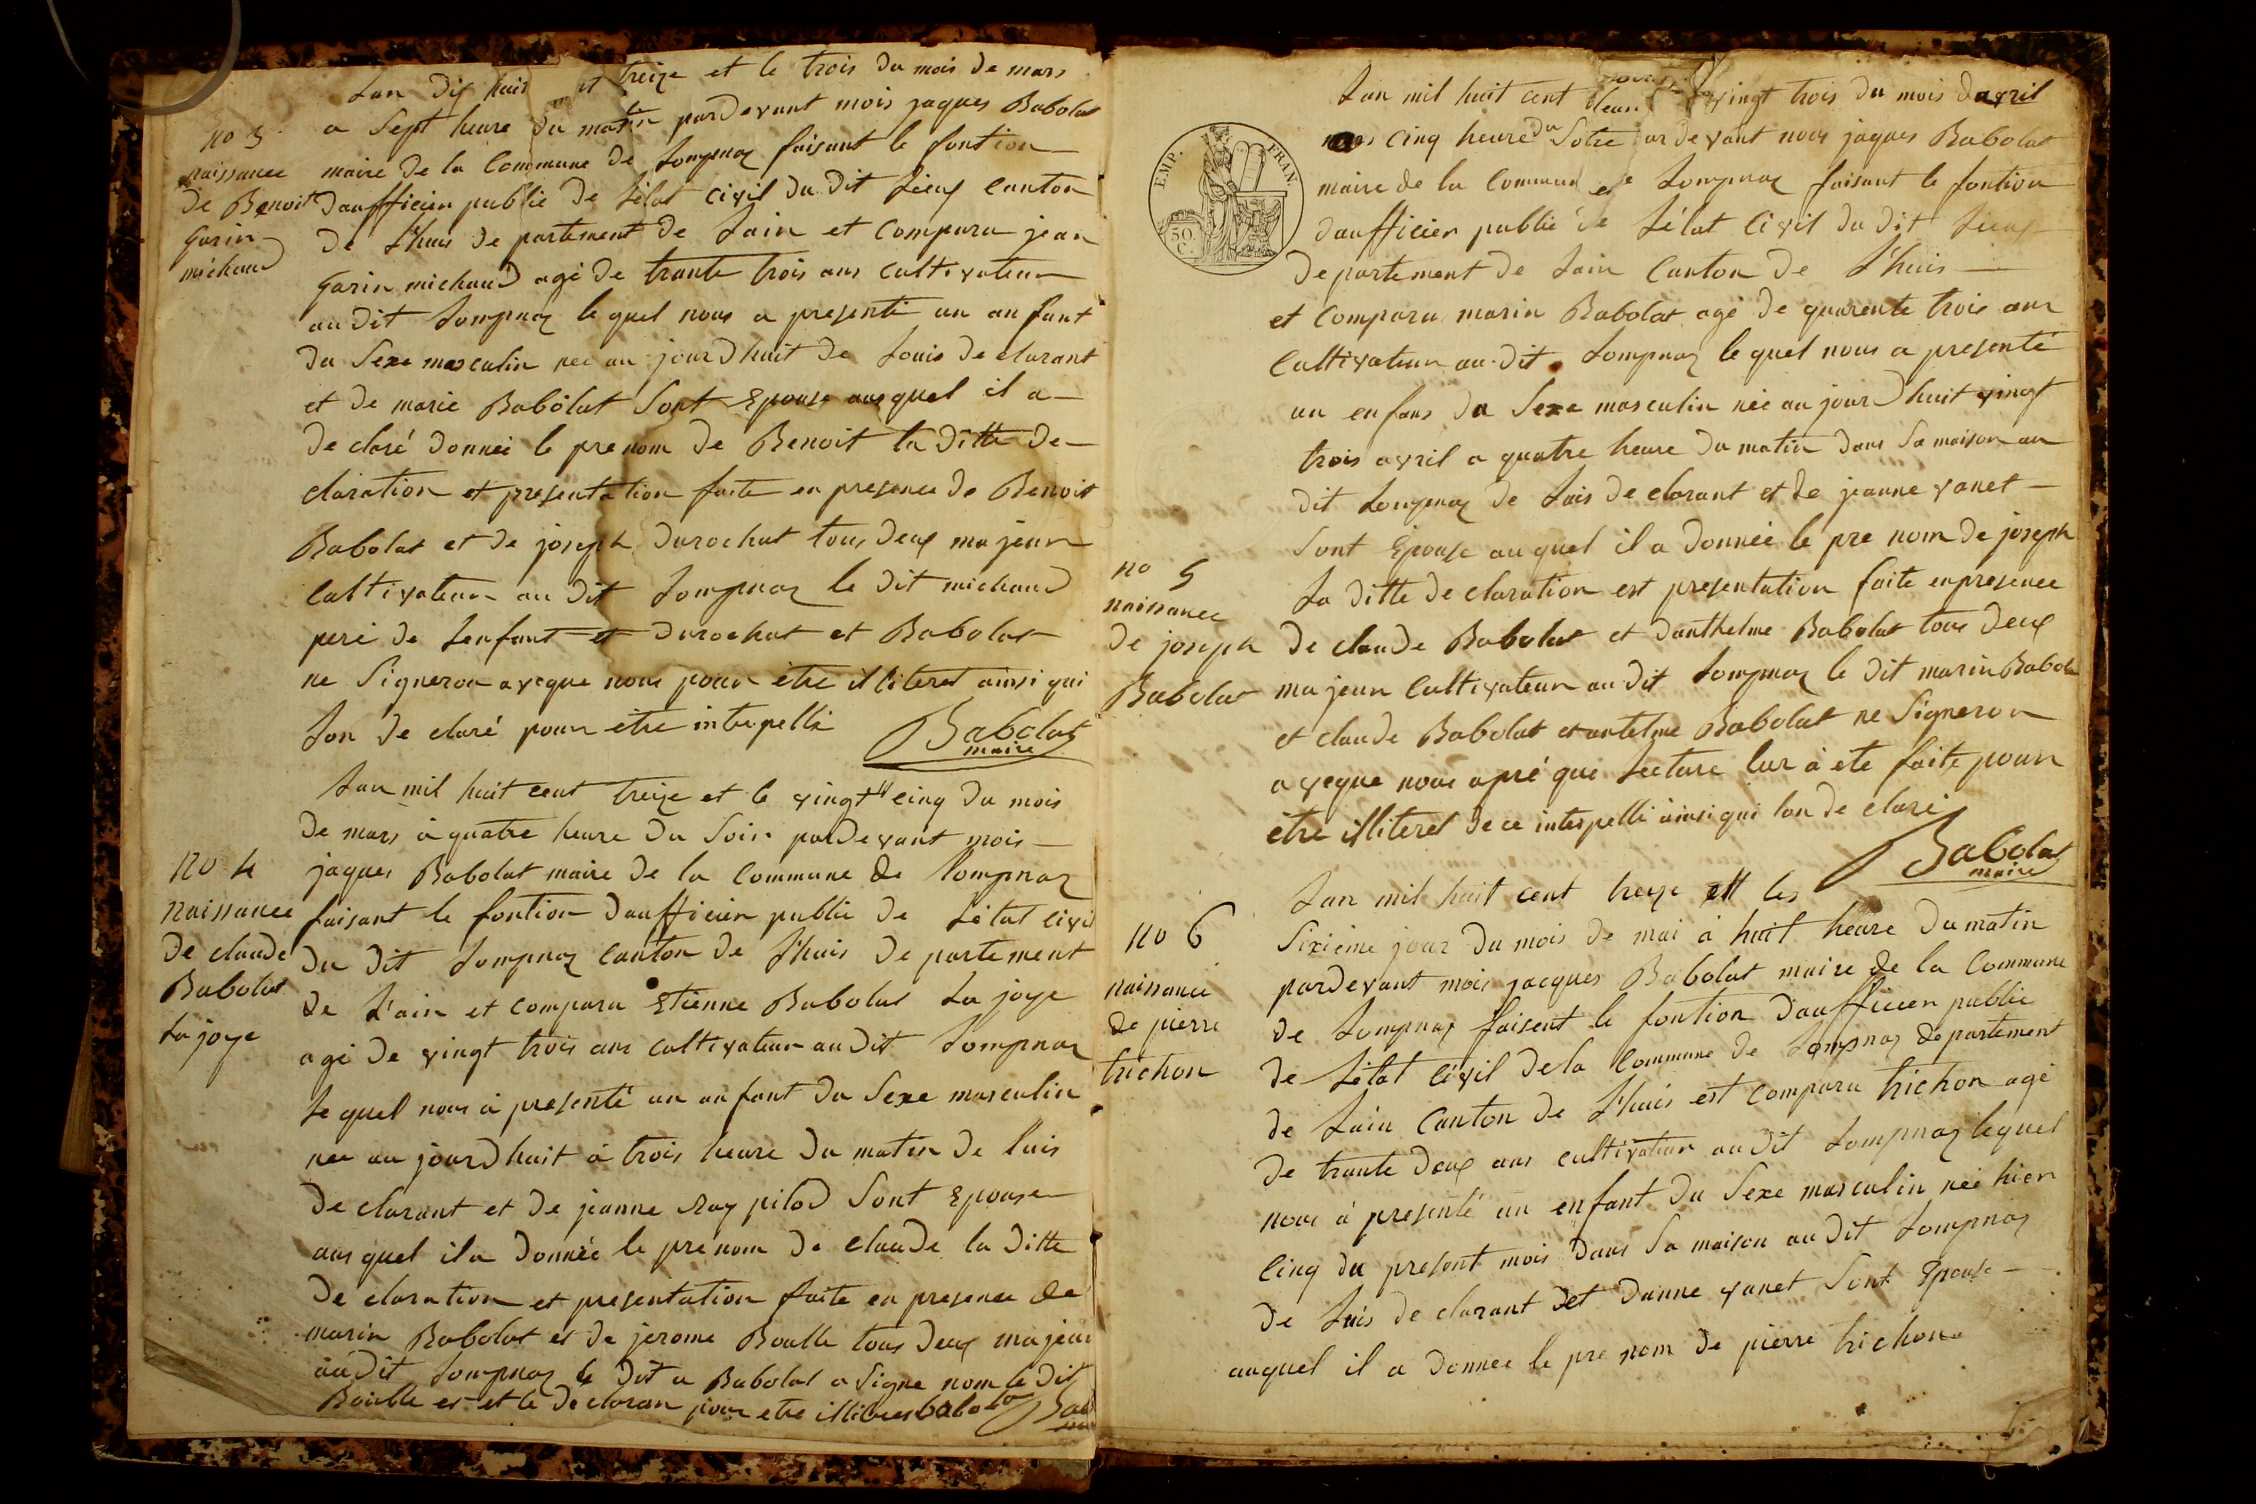 Lan dix huit cent treize et le trois du mois de mars
a Sept heure du matin pardevant mois jaques Babolat
no 3
maire de la Commune de Lompnaz faisant le fontion
naissance
daufficier publie de Létat civil du dit Lieux Canton
de Benoit
de Lhuis departement de Lain et Comparu jean
Garin
michaud
garin michaud agé de trante trois ans Cultivateur
au dit Lompnaz le quel nous a presenté un anfant
du Sexe masculin neé au jourdhuit de Louis declarant
et de marie Babolat Sont Epouse auquel il a
de claré donneé le prenom de Benoit la ditte de
claration et presentation faite en presence de Benoit
Babolat et de joseph durochat tous deux majeur
Cultivateur au dit Lompnaz le dit michaud
peré de Lenfant et durochat et Babolat
ne Signeron aveque nous pour être illiteret ainsi qui
Lon de claré pour etre interpellé
Babolat
maire
Lan mil huit cent treize et le vingt cinq du mois
de mars à quatre heure du Soir pardevant mois
no 4
jaques Babolat maire de la Commune de Lompnaz
naissance
faisant le fontion daufficier publie de Létat civil
de claude
du dit Lompnaz Canton de Lhuis departement
Babolat
de Lain et comparu Etienne Babolat La joye
La joye
agé de vingt trois ans cultivateur au dit Lompnaz
Le quel nous à presenté un anfant du Sexe masculin
neé au jourdhuit à trois heure du matin de luis
de clarant et de jeanne Ray pilod Sont Epouse
auquel il a donneé le prenom de claude la ditte
de claration et presentation faite en presence de
marin Babolat et de jerome Boulle tous deux majeur
au dit Lompnaz le dit a Babolat a Signe nom le dit
Boulle et le declaran pour etre illiteres babolat
Lan mil huit cent treize vingt trois du mois davril
cinq heure du Soire pardevant nous jaques Babolat
EMP. FRAN.
50 C.
maire de la Commune de Lompnaz faisant le fontion
daufficier publie de Létat Civil du dit Lieux
departement de Lain Canton de Lhuis
et Comparu marin Babolat agé de quarente trois ans
Cultivateur au dit Lompnaz le quel nous a presenté
un enfans du Sexe masculin neé au jourdhuit vingt
trois avril a quatre heure du matin dans Sa maison au
dit Lompnaz de Luis de clarant et de jeanne vanet
Sont Epouse au quel il a donneé le pre nom de joseph
no 5
naissance
La ditte de claration est presentation faite enpresence
de joseph
de claude Babolat et danthelme Babolat tous deux
Babolat
majeur Cultivateur au dit Lompnaz le dit marin Babolat
et claude Babolat et antelme Babolat ne Signeron
aveque nous apré que Lecture lur à eté faite pour
étre illiteret de ce interpellé ainsi qui lon de claré
Babolat
maire
Lan mil huit cent treize et les
no 6
Sixieme jour du mois de mai à huit heure du matin
naissance
pardevant mois jacques Babolat maire de la Commune
de pierre
de Lompnaz faisent le fontion daufficier publie
trichon
de Létat Civil dela Commune de Lompnaz departement
de Lain Canton de Lhuis est Comparu trichon agé
de trante deux ans cultivateur au dit Lompnaz lequel
nous à presenté un enfant du Sexe masculin neé hier
Cinq du present mois dans Sa maison au dit Lompnaz
de Luis de clarant det danne vanet Sont Epouse
auquel il a donnee le pre nom de pierre trichon